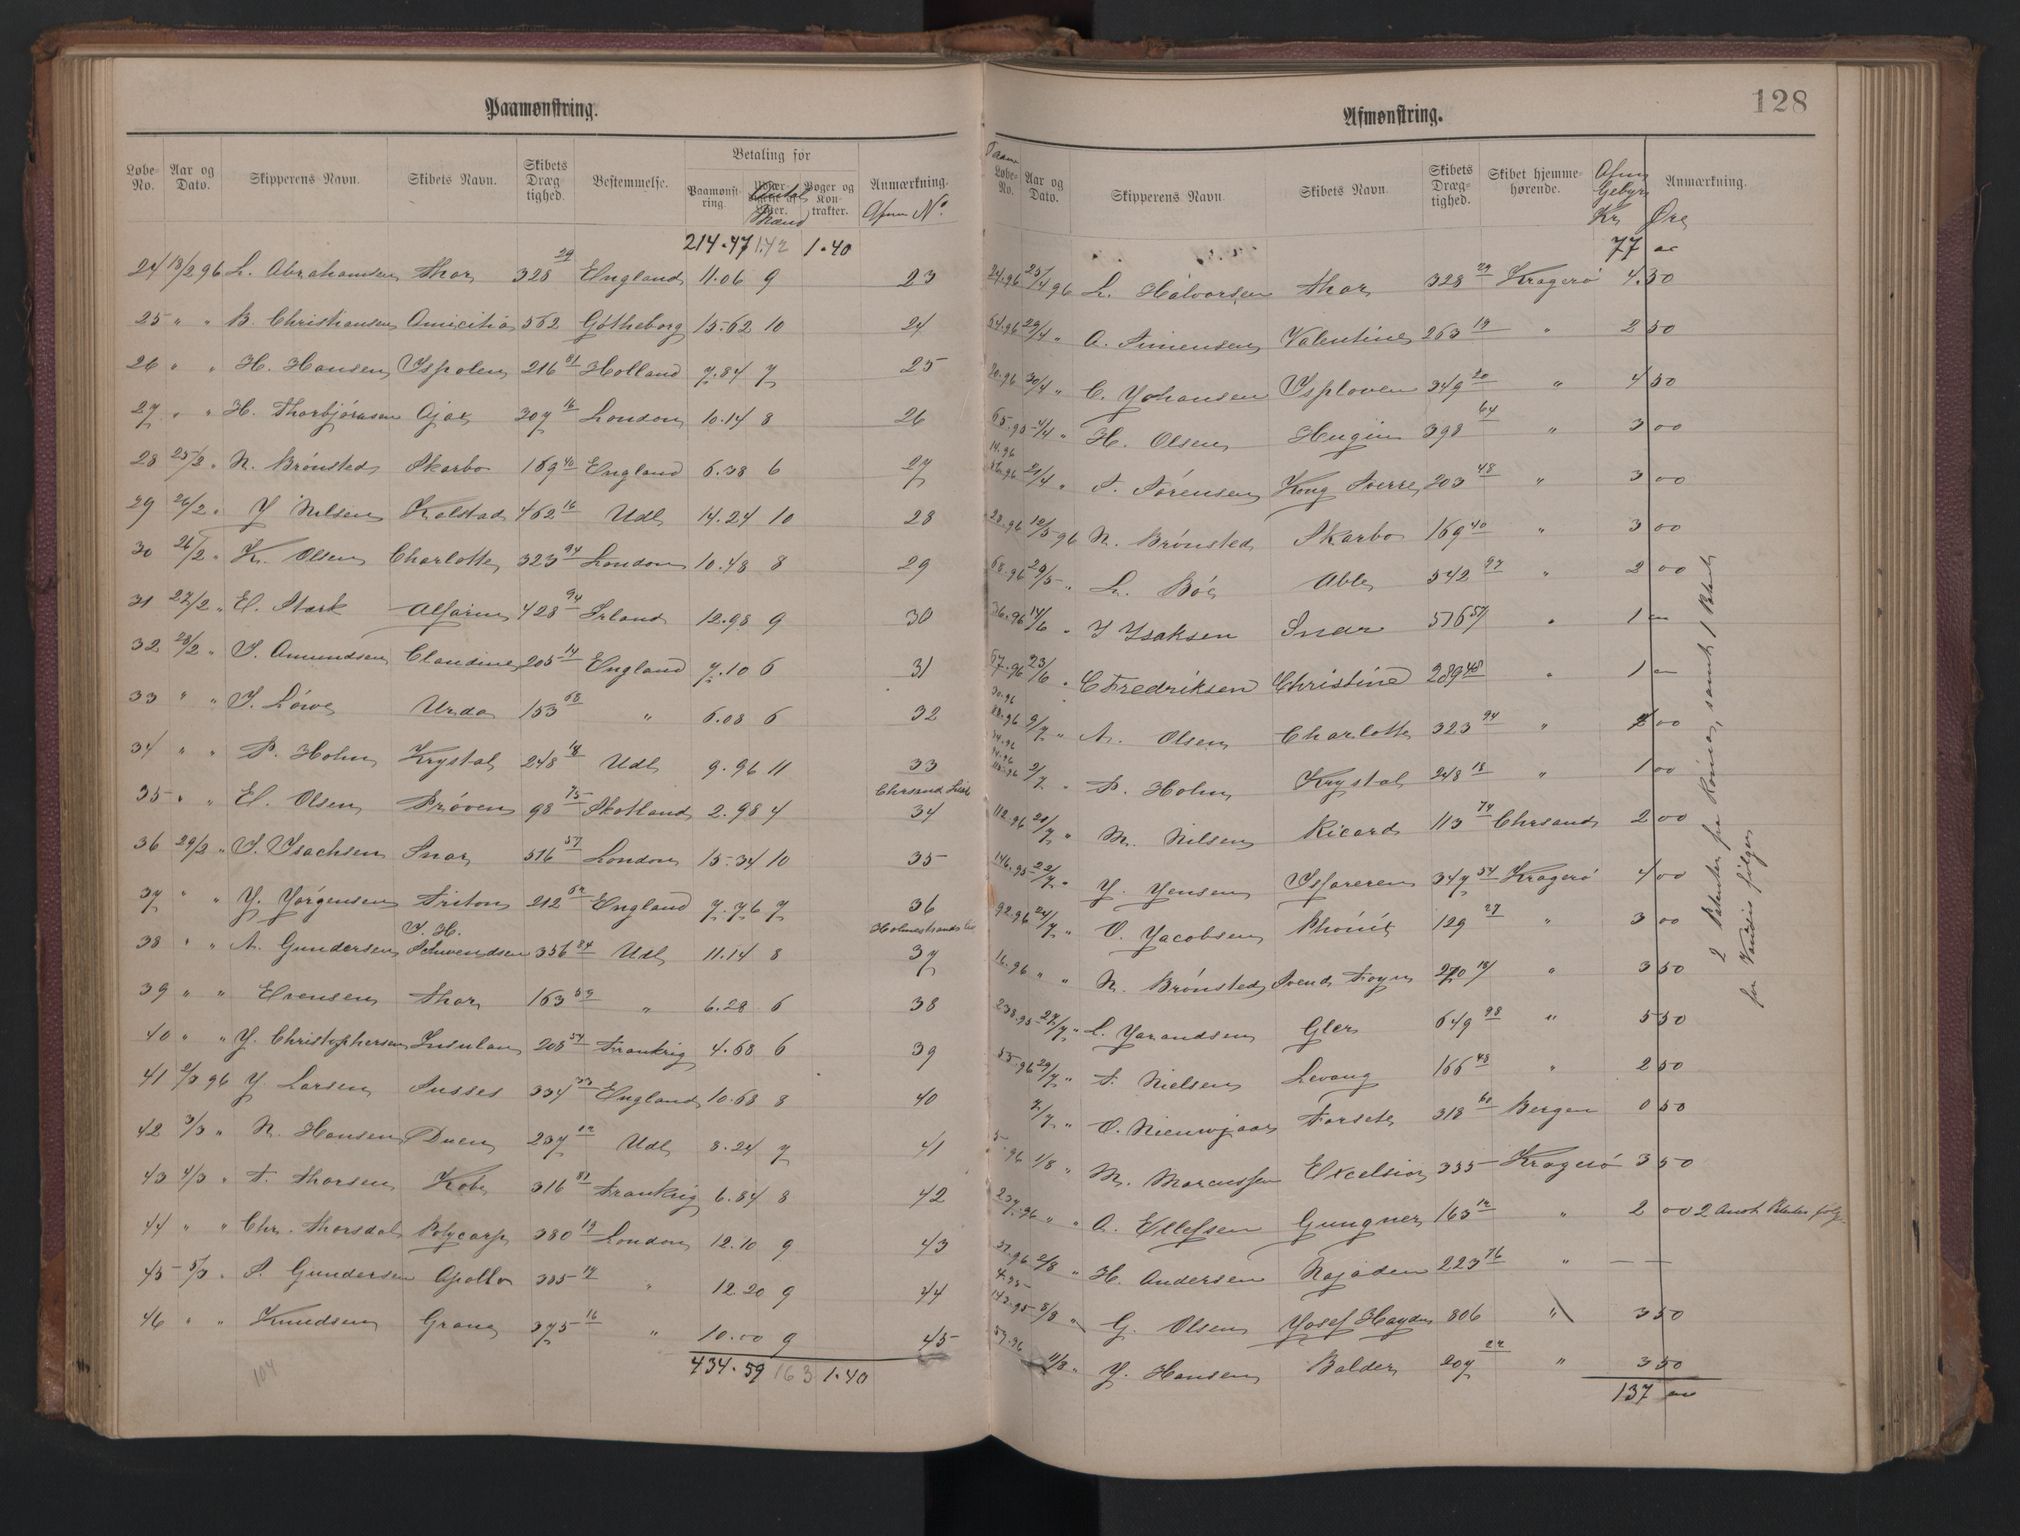 Paamønstring.
Løbe-No. Aar og Dato. Skipperens Navn. Skibets Navn. Skibets Dræg tighed. Bestemmelse. Betaling for Paamønst-ring. Antal Mand Bøger og Kon-trakter. Anmærkning. Afm No.
214.47 142 1.40
24 18/2 96 L. Abrahamsen Thor 328 29 England 11.06 9 23
25 " " B. Christiansen Amicitia 562 Gøtheborg 15-62 10 24
26 " " H. Hansen Ispolen 216 81 Holland 7.84 7 25
27 " " H. Thorbjørnsen Ajax 307 16 London 10.14 8 26
28 25/2 " N. Brønsted Skarbo 169 40 England 6.38 6 27
29 26/2 " J Nilsen Kalstad 462 16 Udl 14.24 10 28
30 26/2 " K. Olsen Charlotte 323 94 London 10.48 8 29
31 27/2 " E. Stærk Alfarin 428 94 Irland 12.98 9 30
32 28/2 " I. Amundsen Claudine 205 14 England 7.10 6 31
33 " " I. Løwe Urda 153 68 " 6.08 6 32
34 " " P. Holm Krystal 248 18 Udl 9.96 11 33
35 " " E. Olsen Prøven 98 75 Skotland 2.98 4 Chrsand 34
36 29/2 " I. Isachsen Snar 516 57 London 15-34 10 35
37 " " J. Jørgensen Triton 212 62 England 7.76 7 36
38 " " A. Gundersen I. H. Schwendsen 356 84 Udl 11.14 8 Holmestrands 37
39 " " Evensen Thor 163 69 " 6.28 6 38
40 " " J. Christophersen Insulan 208 54 Frankrig 4.68 6 39
41 2/3 96 J. Larsen Susses 334 33 England 10.68 8 40
42 3/3 " N. Hansen Duen 237 12 Udl 8.24 7 41
43 4/3 " T. Thorsen Kobe 316 81 Frankrig 6.84 8 42
44 " " Chr. Thorsdal Polycarp 380 19 London 12.10 9 43
45 5/3 " S. Gundersen Apollo 385 14 " 12.20 9 44
46 " " Knudsen Grane 375 16 " 10.00 9 45
434.59 163 1.40
104
128
Afmønstring.
Paam Løbe-No. Aar og Dato. Skipperens Navn. Skibets Navn. Skibets Dræg-tighed. Skibet hjemme-hørende. Afm Gebyr Kr Øre Anmærkning.
77 00
24.96 25/4 96 L. Halvorsen Thor 328 29 Kragerø 4.50
54.96 29/4 " A. Simensen Valentine 263 19 " 2 50
20.96 30/4 " C. Johansen Isploven 349 20 " 4 50
65.95 4/4 " H. Olsen Hugin 398 64 " 3 00
14.96 86.96 21/4 " S. Sørensen Kong Sverre 203 48 " 3 00
28.96 12/5-96 N. Brønsted Skarbo 169 40 " 3 00
68.96 29/5 " L. Bøe Able 542 97 " 2 00
36.96 14/6 " I Isaksen Snar 516 57 " 1 00
67.96 23/6 " C Fredriksen Christine 289 48 " 1 00
30.96 88.96 9/7 " A. Olsen Charlotte 323 94 " 2 00
34.96 2/7 " P. Holm Krystal 248 18 " 1 00
112.96 20/7 " M. Nilsen Ricard 113 74 Chrsand 2 00
146.95 22/7 " J. Jensen Isfareren 347 54 Kragerø 4 00
92.96 24/7 " O. Jacobsen Phønix 129 27 " 3 00
16.96 " " N. Brønsted Svend Foyn 270 18 " 3 50
238.95 27/7 " L. Jorandsen Gler 649 98 " 5 50
55.96 29/7 " T. Nielsen Levang 166 48 " 2 50
7/7 " O. Nieuwjaar Forsete 318 60 Bergen 0 50
5.96 1/8 " M. Marcussen Excelsior 335 Kragerø 3 50
237.96 " " A. Ellefsen Gungner 163 12 " 2 00 2
37.96 2/8 " H. Andersen Najaden 223 76 " — —
4.95 143.95 8/8 " G. Olsen Josef Haydn 806 " 3 50
59.96 11/8 " J. Hansen Balder 207 22 " 3 50
137 00
2 Patenter fra Kønig, samt 1 Patent
for Vardiis følger